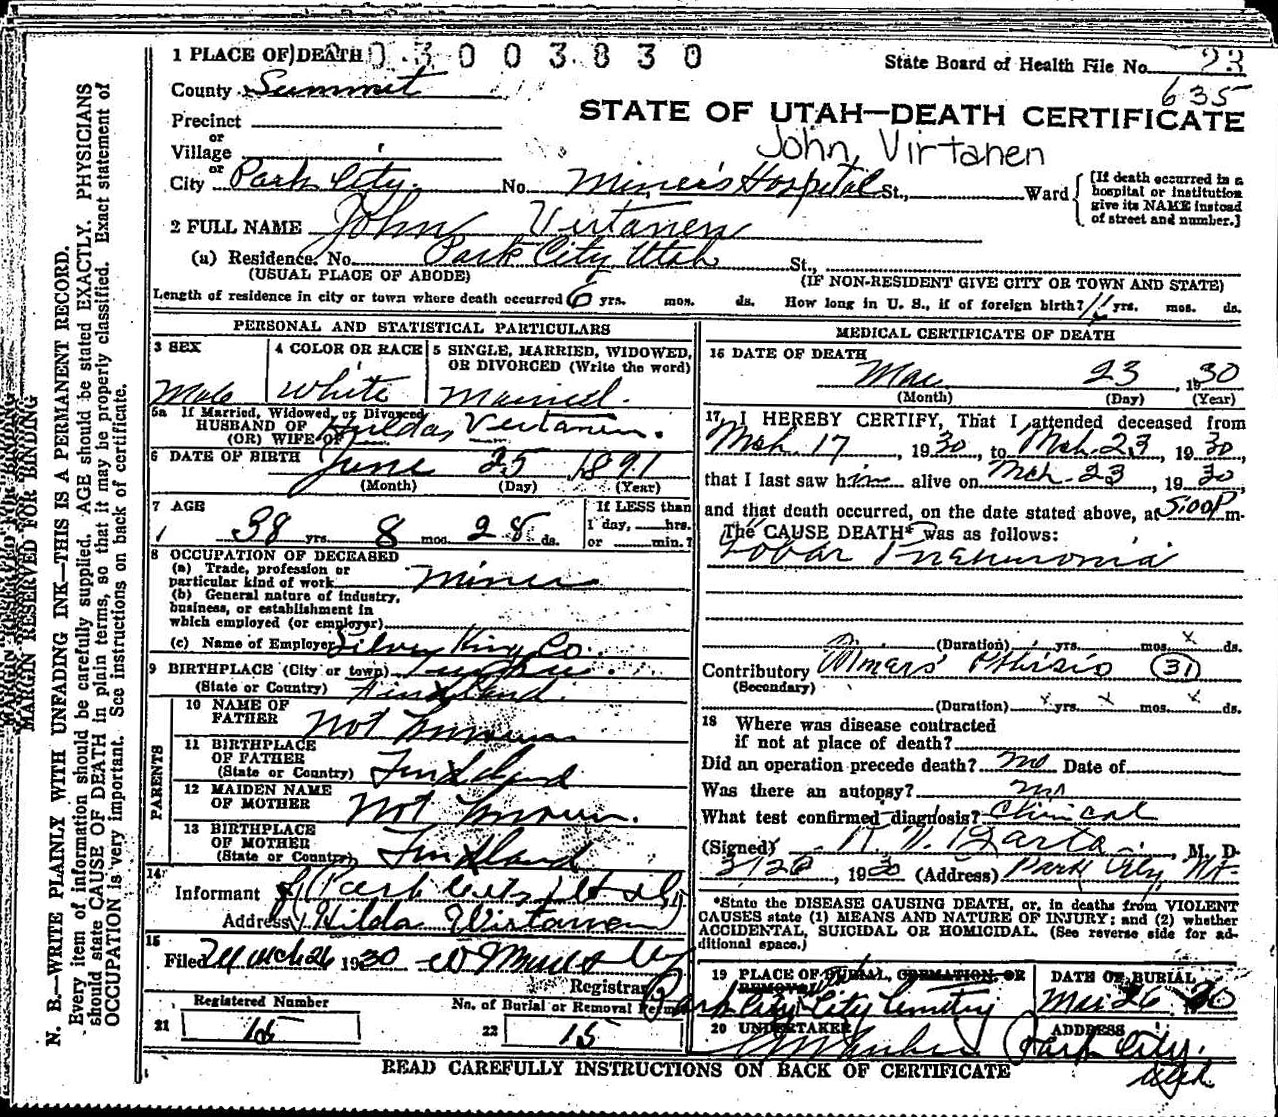 1 PLACE OF DEATH 0 3 0 0 3 8 3 0
State Board of Health File No. 23
635
County Summit
STATE OF UTAH—DEATH CERTIFICATE
Precinct
or
Village
John Virtanen
or
City Park City. No. Miner's Hospital St., Ward
[If death occurred in a hospital or institution give its NAME instead of street and number.]
2 FULL NAME John Virtanen
(a) Residence. No. Park City Utah St.,
(USUAL PLACE OF ABODE) (IF NON-RESIDENT GIVE CITY OR TOWN AND STATE)
Length of residence in city or town where death occurred 6 yrs. mos. ds. How long in U. S., if of foreign birth? yrs. mos. ds.
PERSONAL AND STATISTICAL PARTICULARS
3 SEX
Male
4 COLOR OR RACE
White
5 SINGLE, MARRIED, WIDOWED, OR DIVORCED (Write the word)
Married.
5a If Married, Widowed, or Divorced
HUSBAND OF Huldas Vertanen.
(OR) WIFE OF
6 DATE OF BIRTH June 25 1891
(Month) (Day) (Year)
7 AGE
38 yrs. 8 mos. 28 ds.
If LESS than 1 day, hrs. or min.?
8 OCCUPATION OF DECEASED
(a) Trade, profession or particular kind of work Miner
(b) General nature of industry, business, or establishment in which employed (or employer)
(c) Name of Employer Silver King Co.
9 BIRTHPLACE (City or town)
(State or Country) Finland.
PARENTS
10 NAME OF FATHER Not Known
11 BIRTHPLACE OF FATHER (State or Country) Finland
12 MAIDEN NAME OF MOTHER Not Known.
13 BIRTHPLACE OF MOTHER (State or Country) Finland
14
Informant (Park City
Address (Hilda Wirtanen)
15
Filed March 26 1930
Registrar
Registered Number
21
No. of Burial or Removal Permit
22 15
MEDICAL CERTIFICATE OF DEATH
16 DATE OF DEATH
Mac 23, 1930
(Month) (Day) (Year)
17 I HEREBY CERTIFY, That I attended deceased from
Mch. 17, 1930, to Mch. 23, 1930,
that I last saw him alive on Mch. 23, 1930,
and that death occurred, on the date stated above, at 5:00P m.
The CAUSE DEATH* was as follows:
Lobar Pneumonia
(Duration) yrs. mos. x ds.
Contributory Miners' Phthisis (31)
(Secondary)
(Duration) x yrs. x mos. x ds.
18 Where was disease contracted
if not at place of death?
Did an operation precede death? no Date of
Was there an autopsy? no
What test confirmed diagnosis? Clinical
(Signed) , M. D.
, 1930 (Address) Park City, Ut.
*State the DISEASE CAUSING DEATH, or, in deaths from VIOLENT CAUSES state (1) MEANS AND NATURE OF INJURY; and (2) whether ACCIDENTAL, SUICIDAL OR HOMICIDAL. (See reverse side for additional space.)
19 PLACE OF BURIAL, CREMATION, OR REMOVAL
Park City City Cemetery
DATE OF BURIAL
Mar 26 30
20 UNDERTAKER
ADDRESS
Park City.
Utah
READ CAREFULLY INSTRUCTIONS ON BACK OF CERTIFICATE
MARGIN RESERVED FOR BINDING
N. B.—WRITE PLAINLY WITH UNFADING INK—THIS IS A PERMANENT RECORD.
Every item of information should be carefully supplied. AGE should be stated EXACTLY. PHYSICIANS
should state CAUSE OF DEATH in plain terms, so that it may be properly classified. Exact statement of
OCCUPATION is very important. See instructions on back of certificate.